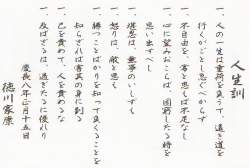 人生訓
一、人の一生は重荷を負うて、遠き道を
行くがごとし急ぐべからず
一、不自由を、常と思えば不足なし
一、心に望みおこらば、困窮したる時を
思い出すべし
一、堪忍は、無事のいしずえ
一、怒りは、敵と思え
一、勝つことばかりを知って負くることを
知らざれば害其の身に到る
一、己を責めて、人を責めるな
一、及ばざるは、過ぎたるに優れり
慶長八年正月十五日
徳川家康